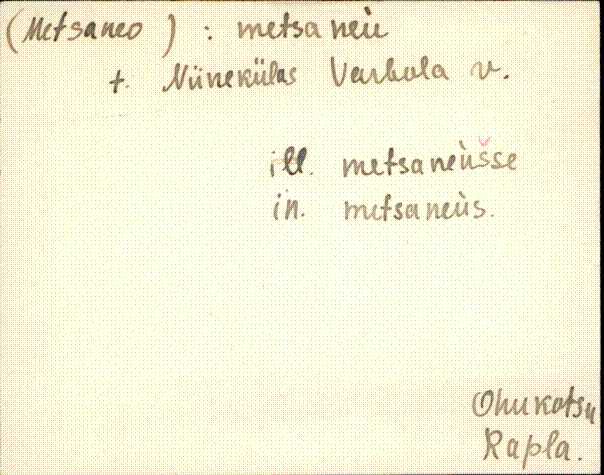 (Metsaneo) : metsaneù
t. Niinekülas Varbola v.
ill. metsaneùšse
in. metsaneùs.
Ohukotsu
Rapla.